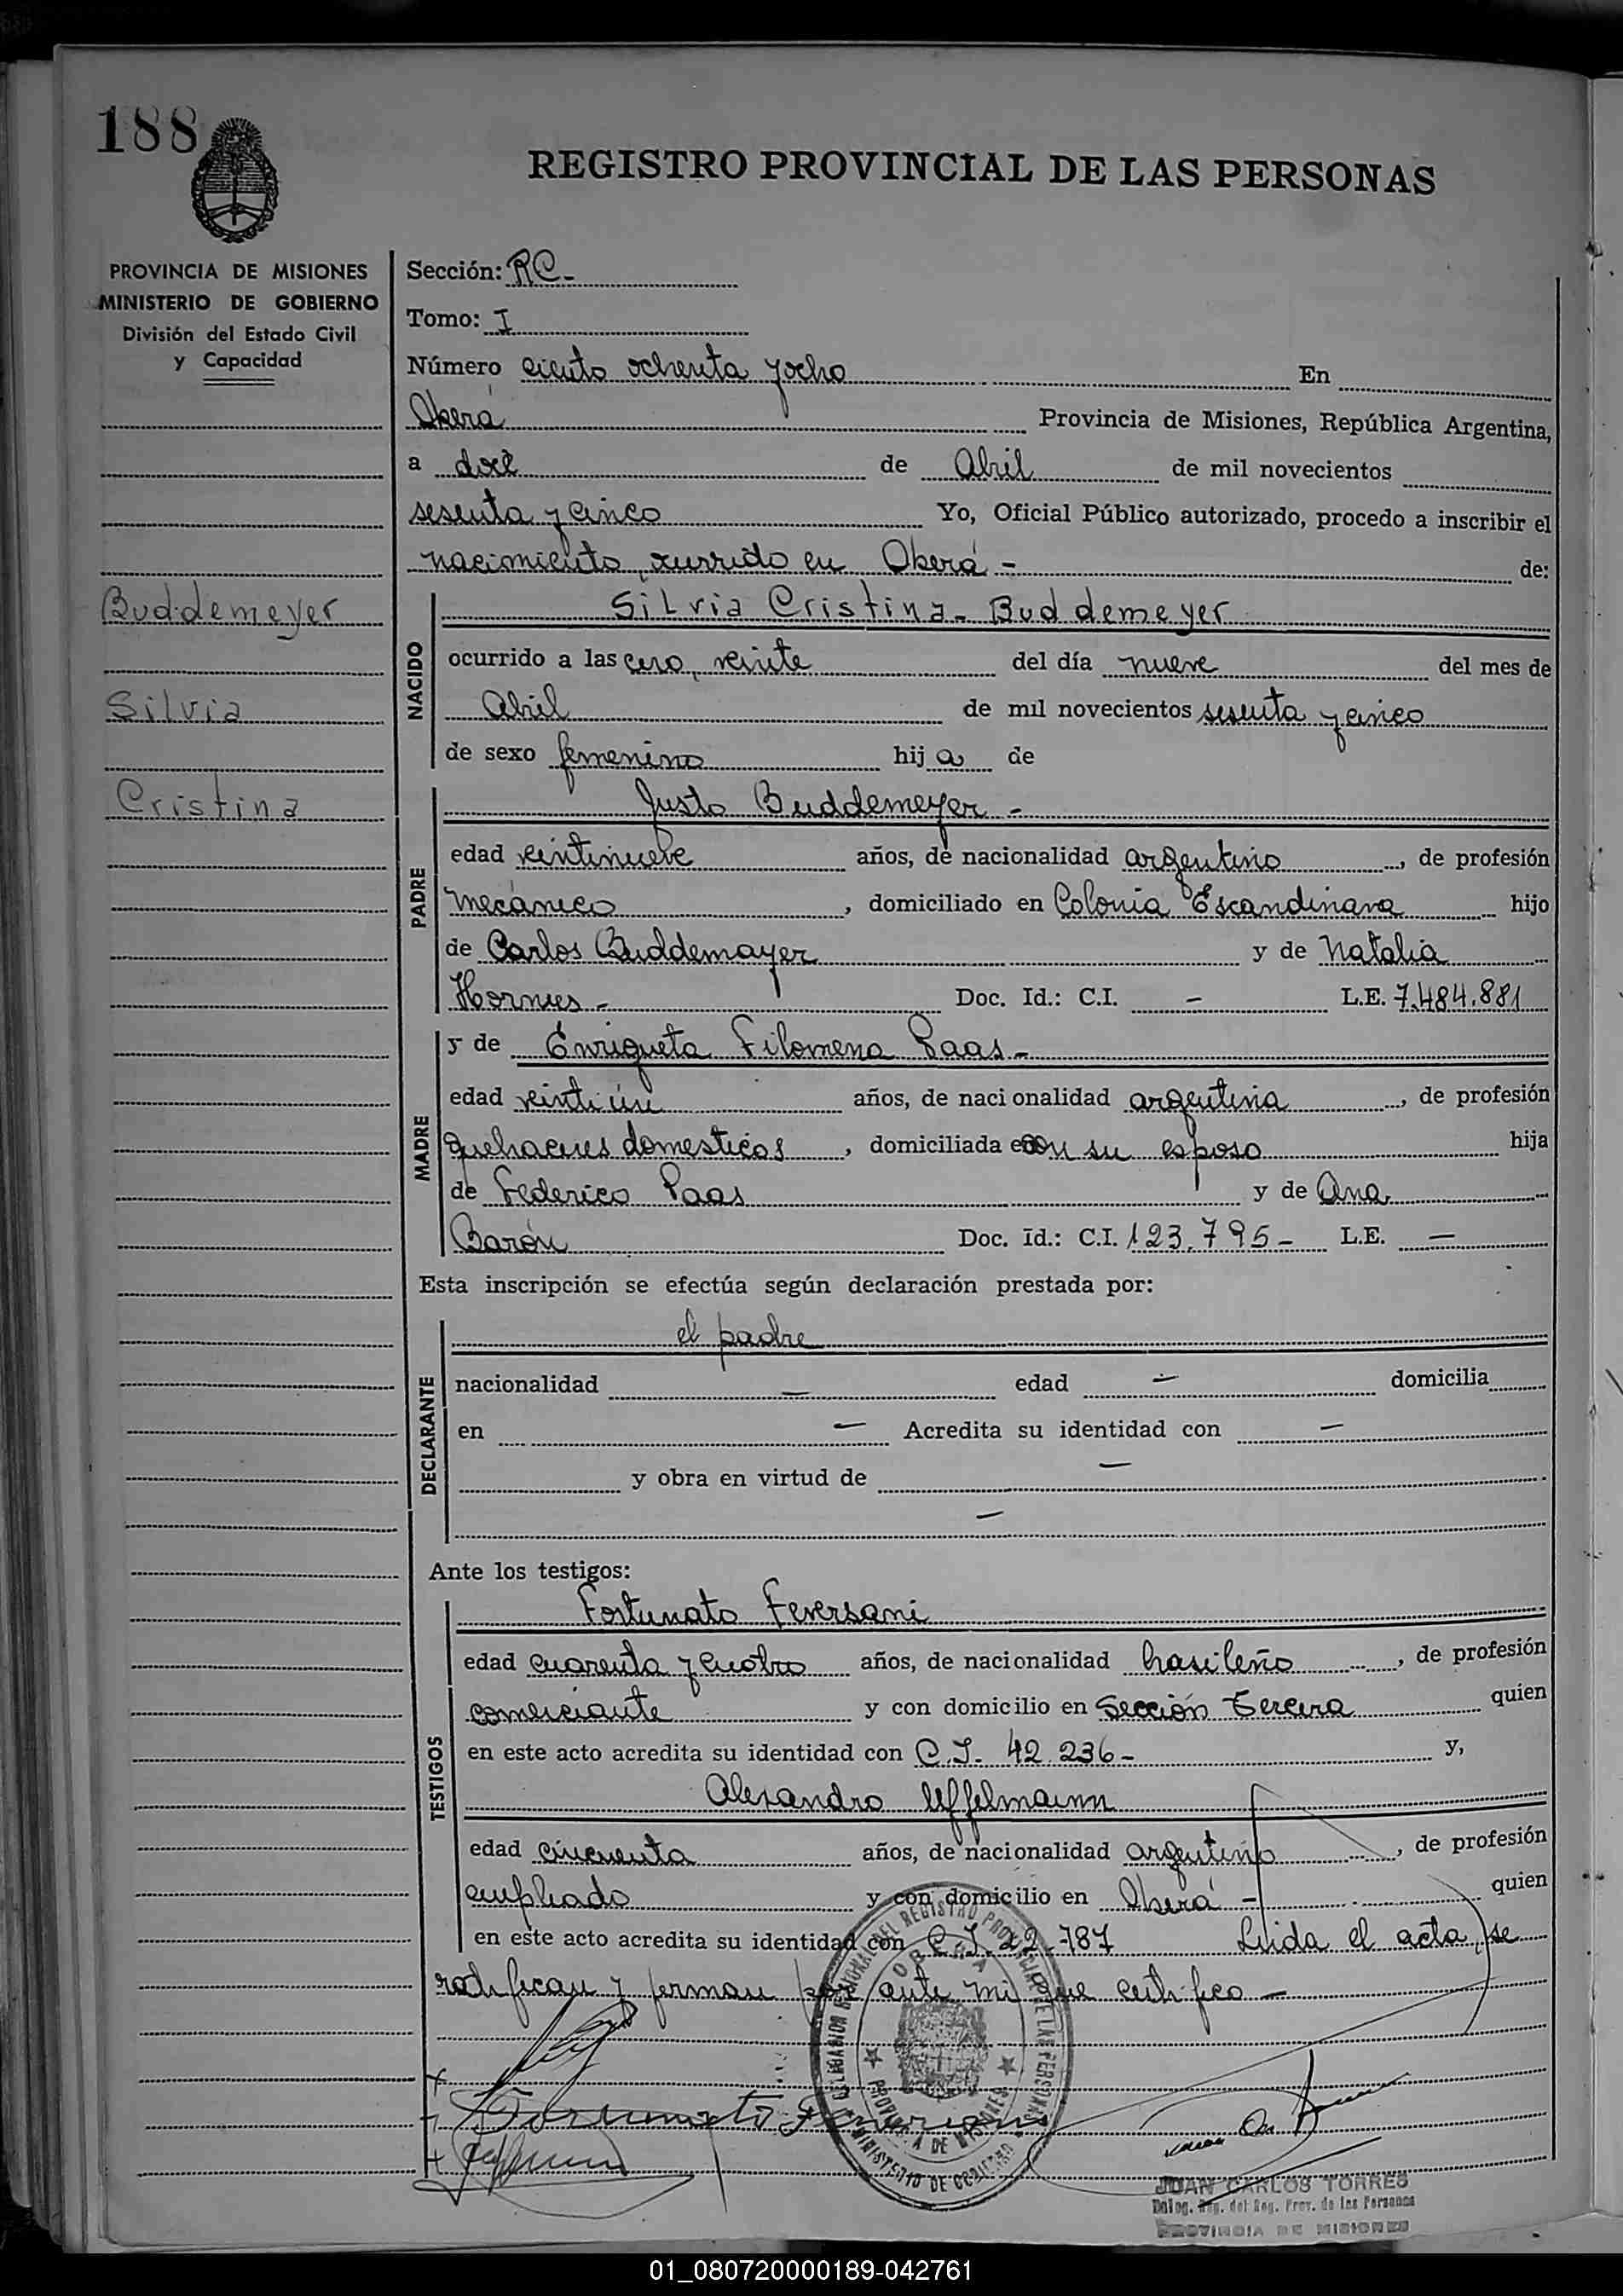 188
REGISTRO PROVINCIAL DE LAS PERSONAS
PROVINCIA DE MISIONES
MINISTERIO DE GOBIERNO
División del Estado Civil
y Capacidad
Buddemeyer
Silvia
Cristina
Sección: RC-
Tomo: I
Número ciento ochenta y ocho En
Oberá Provincia de Misiones, República Argentina,
a doce de Abril de mil novecientos
sesenta y cinco Yo, Oficial Público autorizado, procedo a inscribir el
nacimiento, ocurrido en Oberá - de:
NACIDO
Silvia Cristina - Buddemeyer
ocurrido a las cero, veinte del día nueve del mes de
Abril de mil novecientos sesenta y cinco
de sexo femenino hij a de
PADRE
Justo Buddemeyer -
edad veintinueve años, de nacionalidad argentino, de profesión
mecánico, domiciliado en Colonia Escandinava hijo
de Carlos Buddemayer y de Natalia
Hornus - Doc. Id.: C.I. - L.E. 7.484.881
MADRE
y de Enriqueta Filomena Paas -
edad veintiún años, de nacionalidad argentina, de profesión
quehaceres domesticos, domiciliada con su esposo hija
de Federico Paas y de Ana
Barón Doc. Id.: C.I. 123.795- L.E. —
Esta inscripción se efectúa según declaración prestada por:
DECLARANTE
el padre
nacionalidad — edad — domicilia
en — Acredita su identidad con —
y obra en virtud de —
—
Ante los testigos:
TESTIGOS
Fortunato Feversani
edad cuarenta y cuatro años, de nacionalidad brasileño, de profesión
comerciante y con domicilio en Sección Tercera quien
en este acto acredita su identidad con C.I. 42.236- y,
Alexandro Uffelmann
edad cincuenta años, de nacionalidad argentino, de profesión
empleado y con domicilio en Oberá - quien
en este acto acredita su identidad con C.I. 22.787 Leída el acta, se
ratifican y firman por ante mi que certifico —
Fortunato Feversani
DELEGACION REGIONAL DEL REGISTRO PROVINCIAL DE LAS PERSONAS
OBERA
PROVINCIA DE MISIONES
MINISTERIO DE GOBIERNO
JUAN CARLOS TORRES
Deleg. Reg. del Reg. Prov. de las Personas
PROVINCIA DE MISIONES
01_080720000189-042761